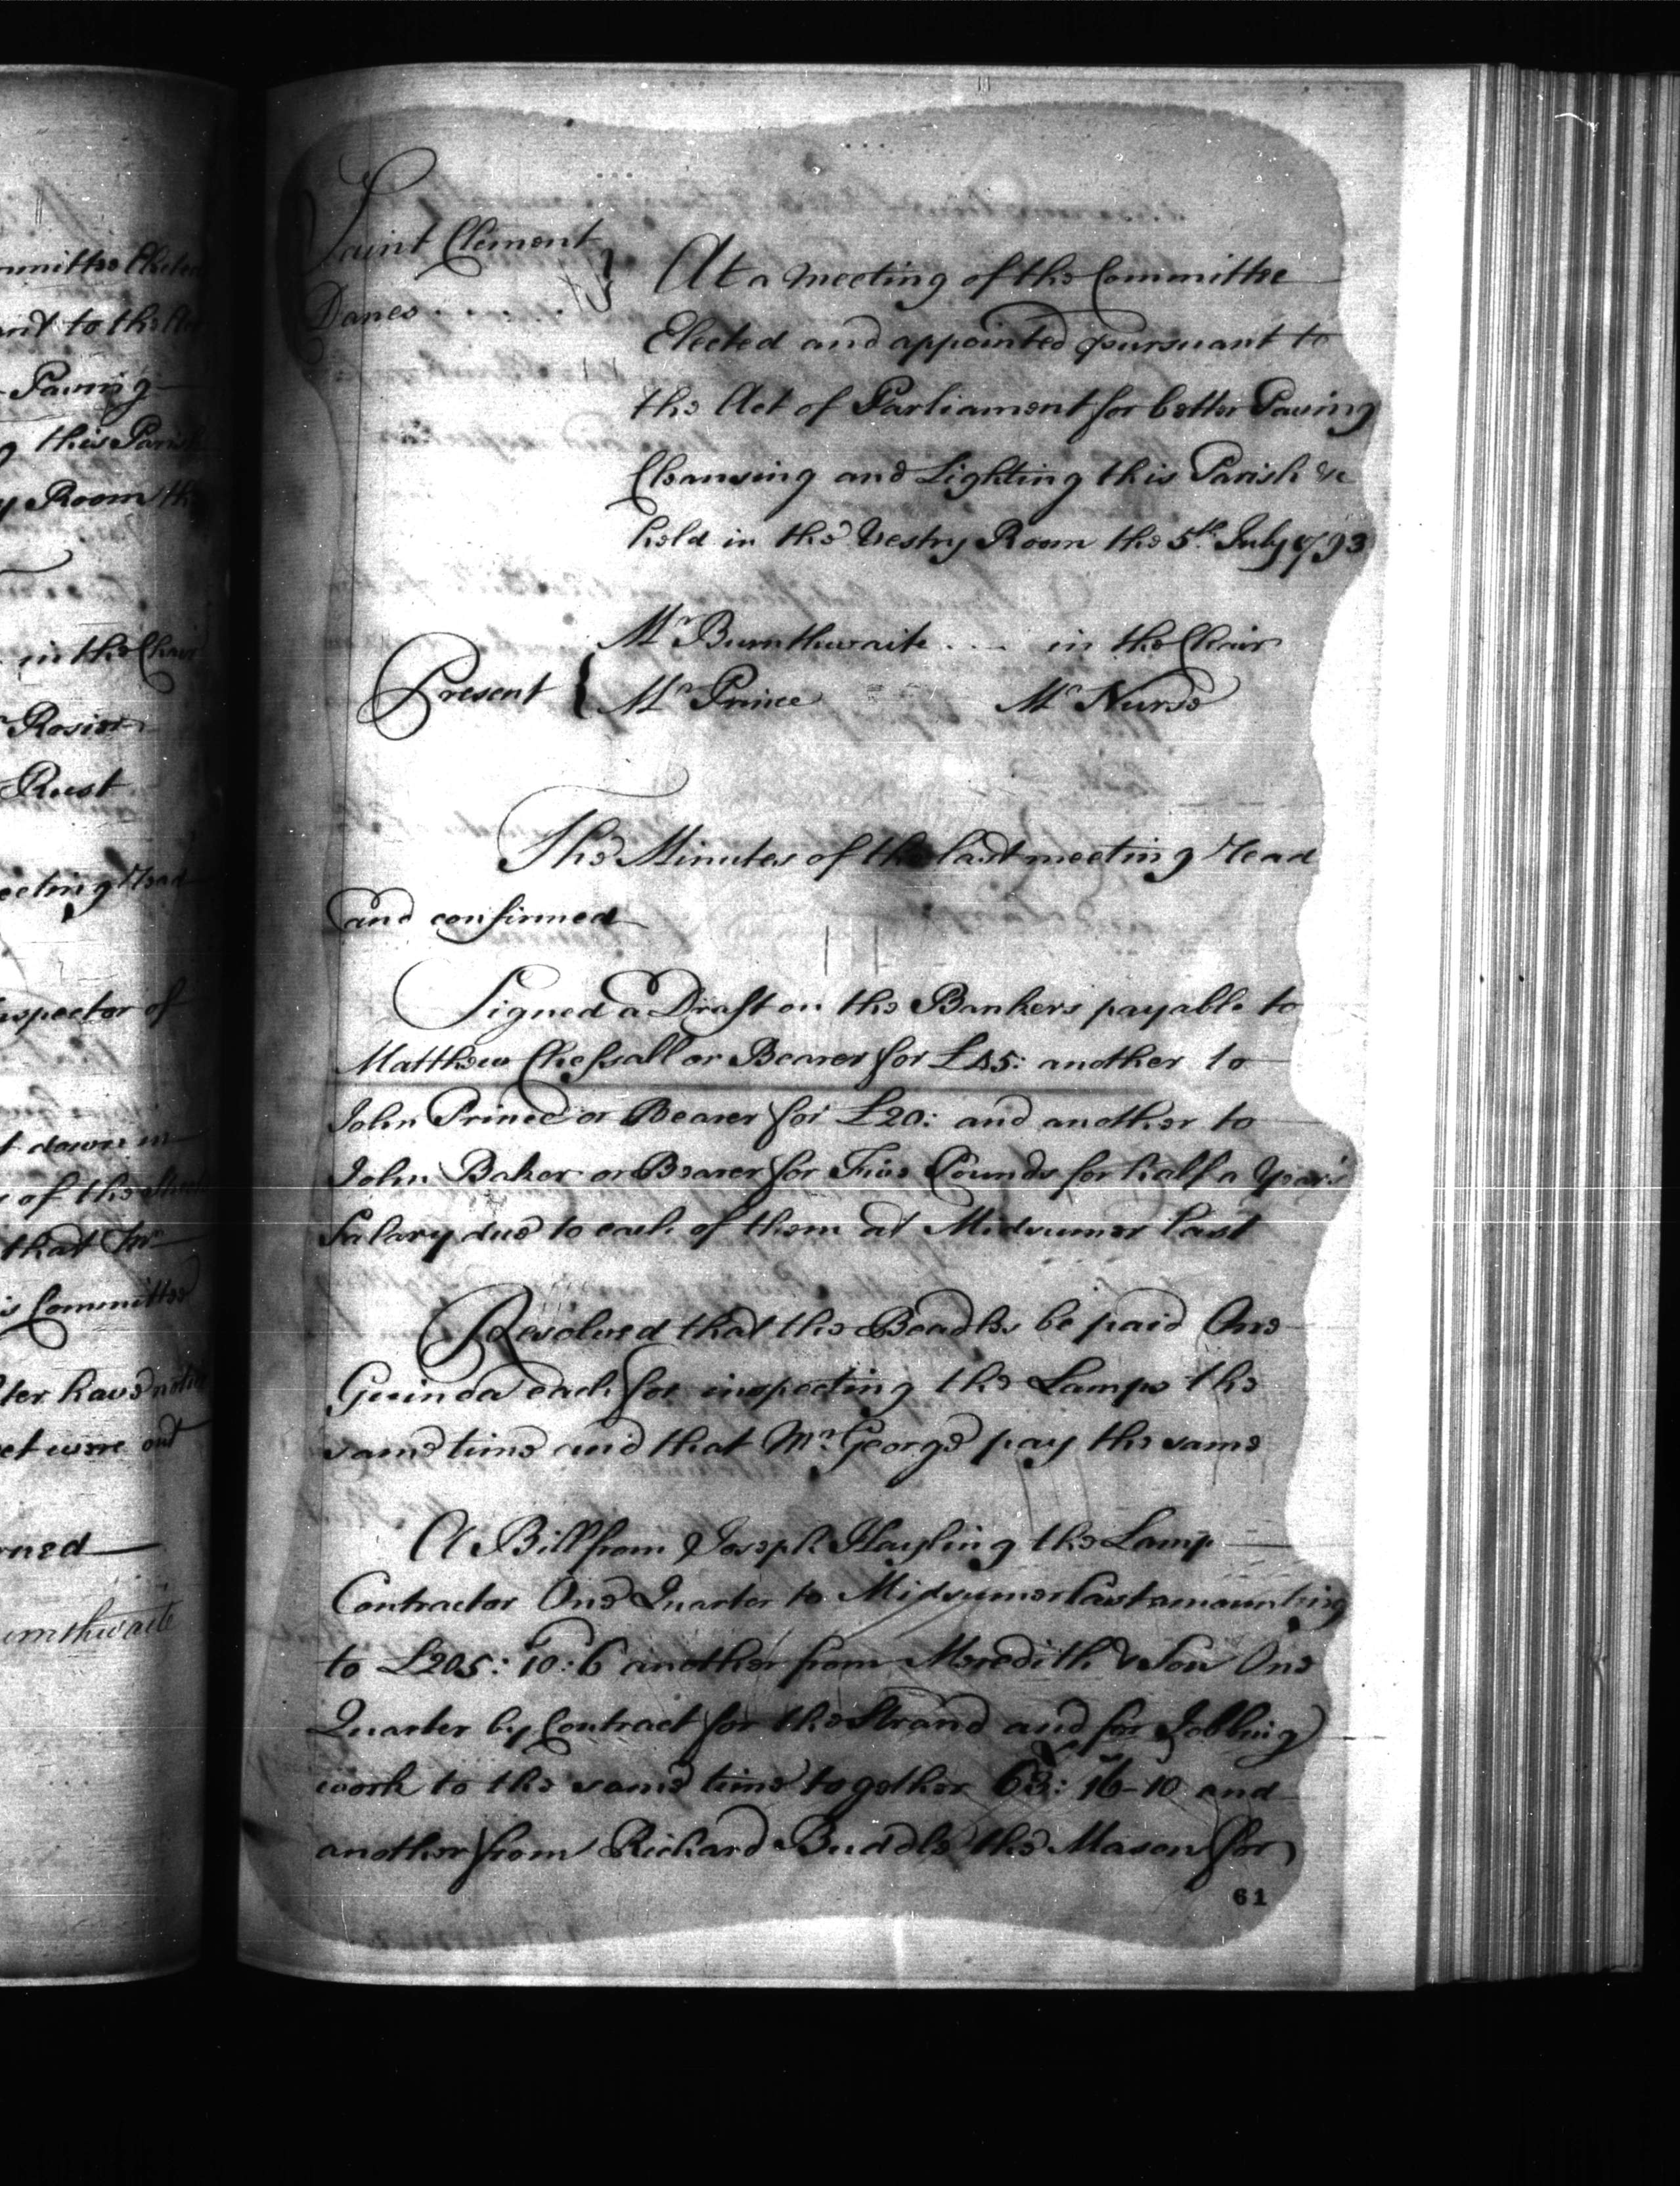 mmittee Elected
ant to the Act
Paving
g this Parish
y Room the
in the Chair
Rosier
Rust
eeting Read
nspector of
t down in
of the Streets
that
is Committee
ter have notice
et were out
rned
urnthwaite
Saint Clement
Danes
At a Meeting of the Committee
Elected and appointed pursuant to
the Act of Parliament for better Paving
Cleansing and Lighting this Parish &c
held in the Vestry Room the 5th. July 1793
Mr Burnthwaite ... in the Chair
Present { Mr Prince Mr Nurse
The Minutes of the last meeting Read
and confirmed
Signed a Draft on the Bankers payable to
Matthew Chessall or Bearer for £45: another to
John Prince or Bearer for £20: and another to
John Baker or Bearer for Five Pounds for half a Year's
Salary due to each of them at Midsumer last
Resolved that the Beadles be paid One
Guinea each for inspecting the Lamps the
same time and that Mr. George pay the same
A Bill from Joseph Hayling the Lamp
Contractor One Quarter to Midsumer last amounting
to £205: 10: 6 another from Meredith & Son One
Quarter by Contract for the Strand and for Jobbing
work to the same time together 63: 16-10 and
another from Richard Buddle the Mason for
61